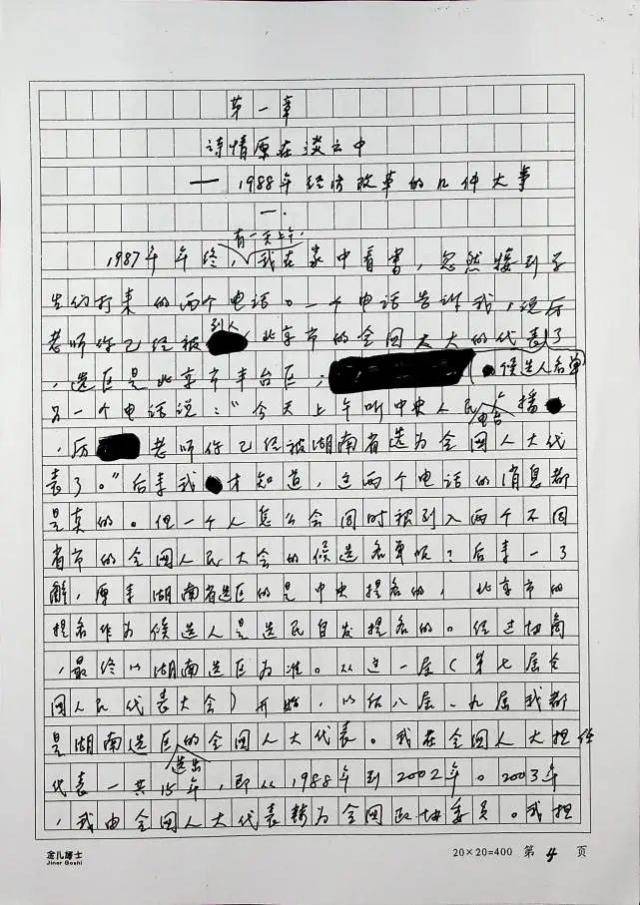 第一章
诗情原在淡云中
——1988年经济改革的几件大事
一.
有一天上午
1987年年终，我在家中看书，忽然接到学
生们打来的两个电话。一个电话告诉我，说厉
老师你已经被列入北京市的全国人大的代表了
，选区是北京市丰台区；候选人名单
另一个电话说：“今天上午听中央人民广播
电台
，厉老师你已经被湖南省选为全国人大代
表了。”后来我才知道，这两个电话的消息都
是真的。但一个人怎么会同时被列入两个不同
省市的全国人民大会的候选名单呢？后来一了
解，原来湖南省选区的是中央提名的，北京市的
提名作为候选人是选民自发提名的。经过协商
，最终以湖南选区为准。从这一届（第七届全
国人民代表大会）开始，以后八届、九届我都
是湖南选区的全国人大代表。我在全国人大担任
选出
代表一共15年，即从1988年到2002年。2003年
，我由全国人大代表转为全国政协委员。我担
金儿博士
Jiner Boshi
20×20=400 第 4 页